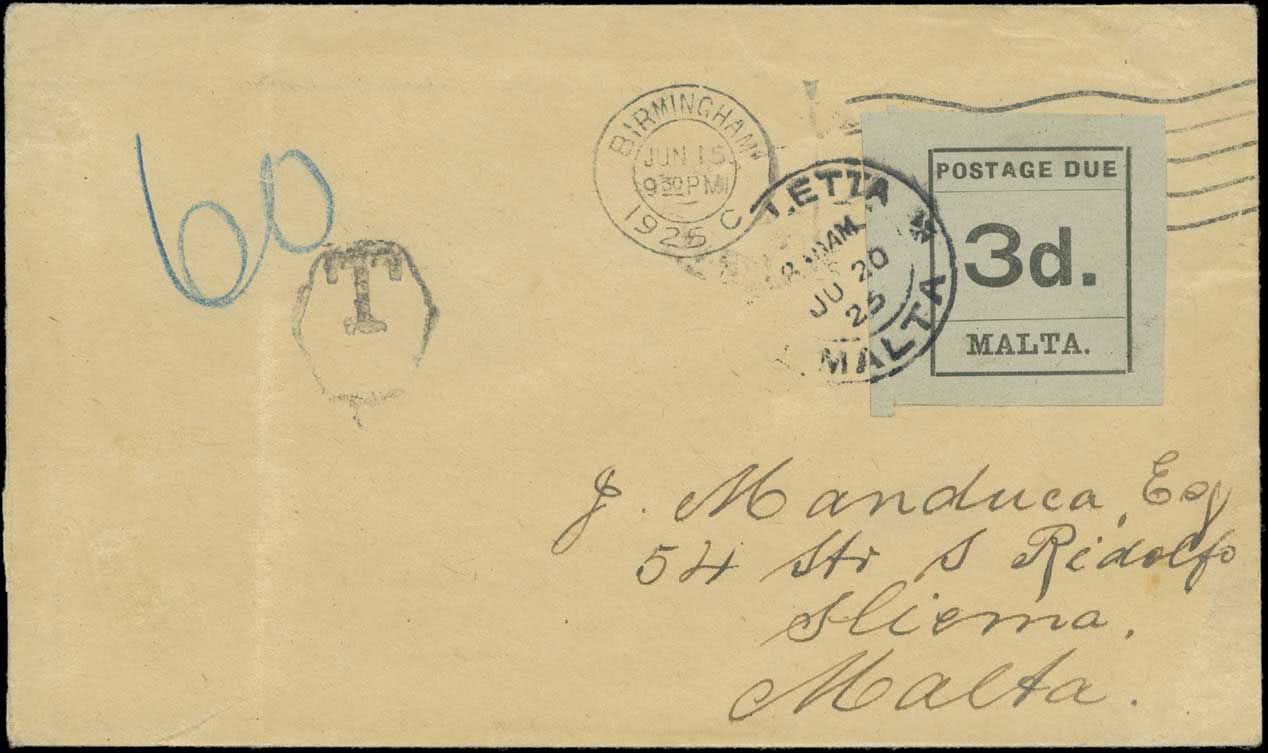 60
T
BIRMINGHAM
JUN 15
9 30 PM
1925 C
LETTA
MALTA
AM
JU 20
25
POSTAGE DUE
3d.
MALTA.
J. Manduca, Esq
54 Str S Ridolfo
Sliema,
Malta.